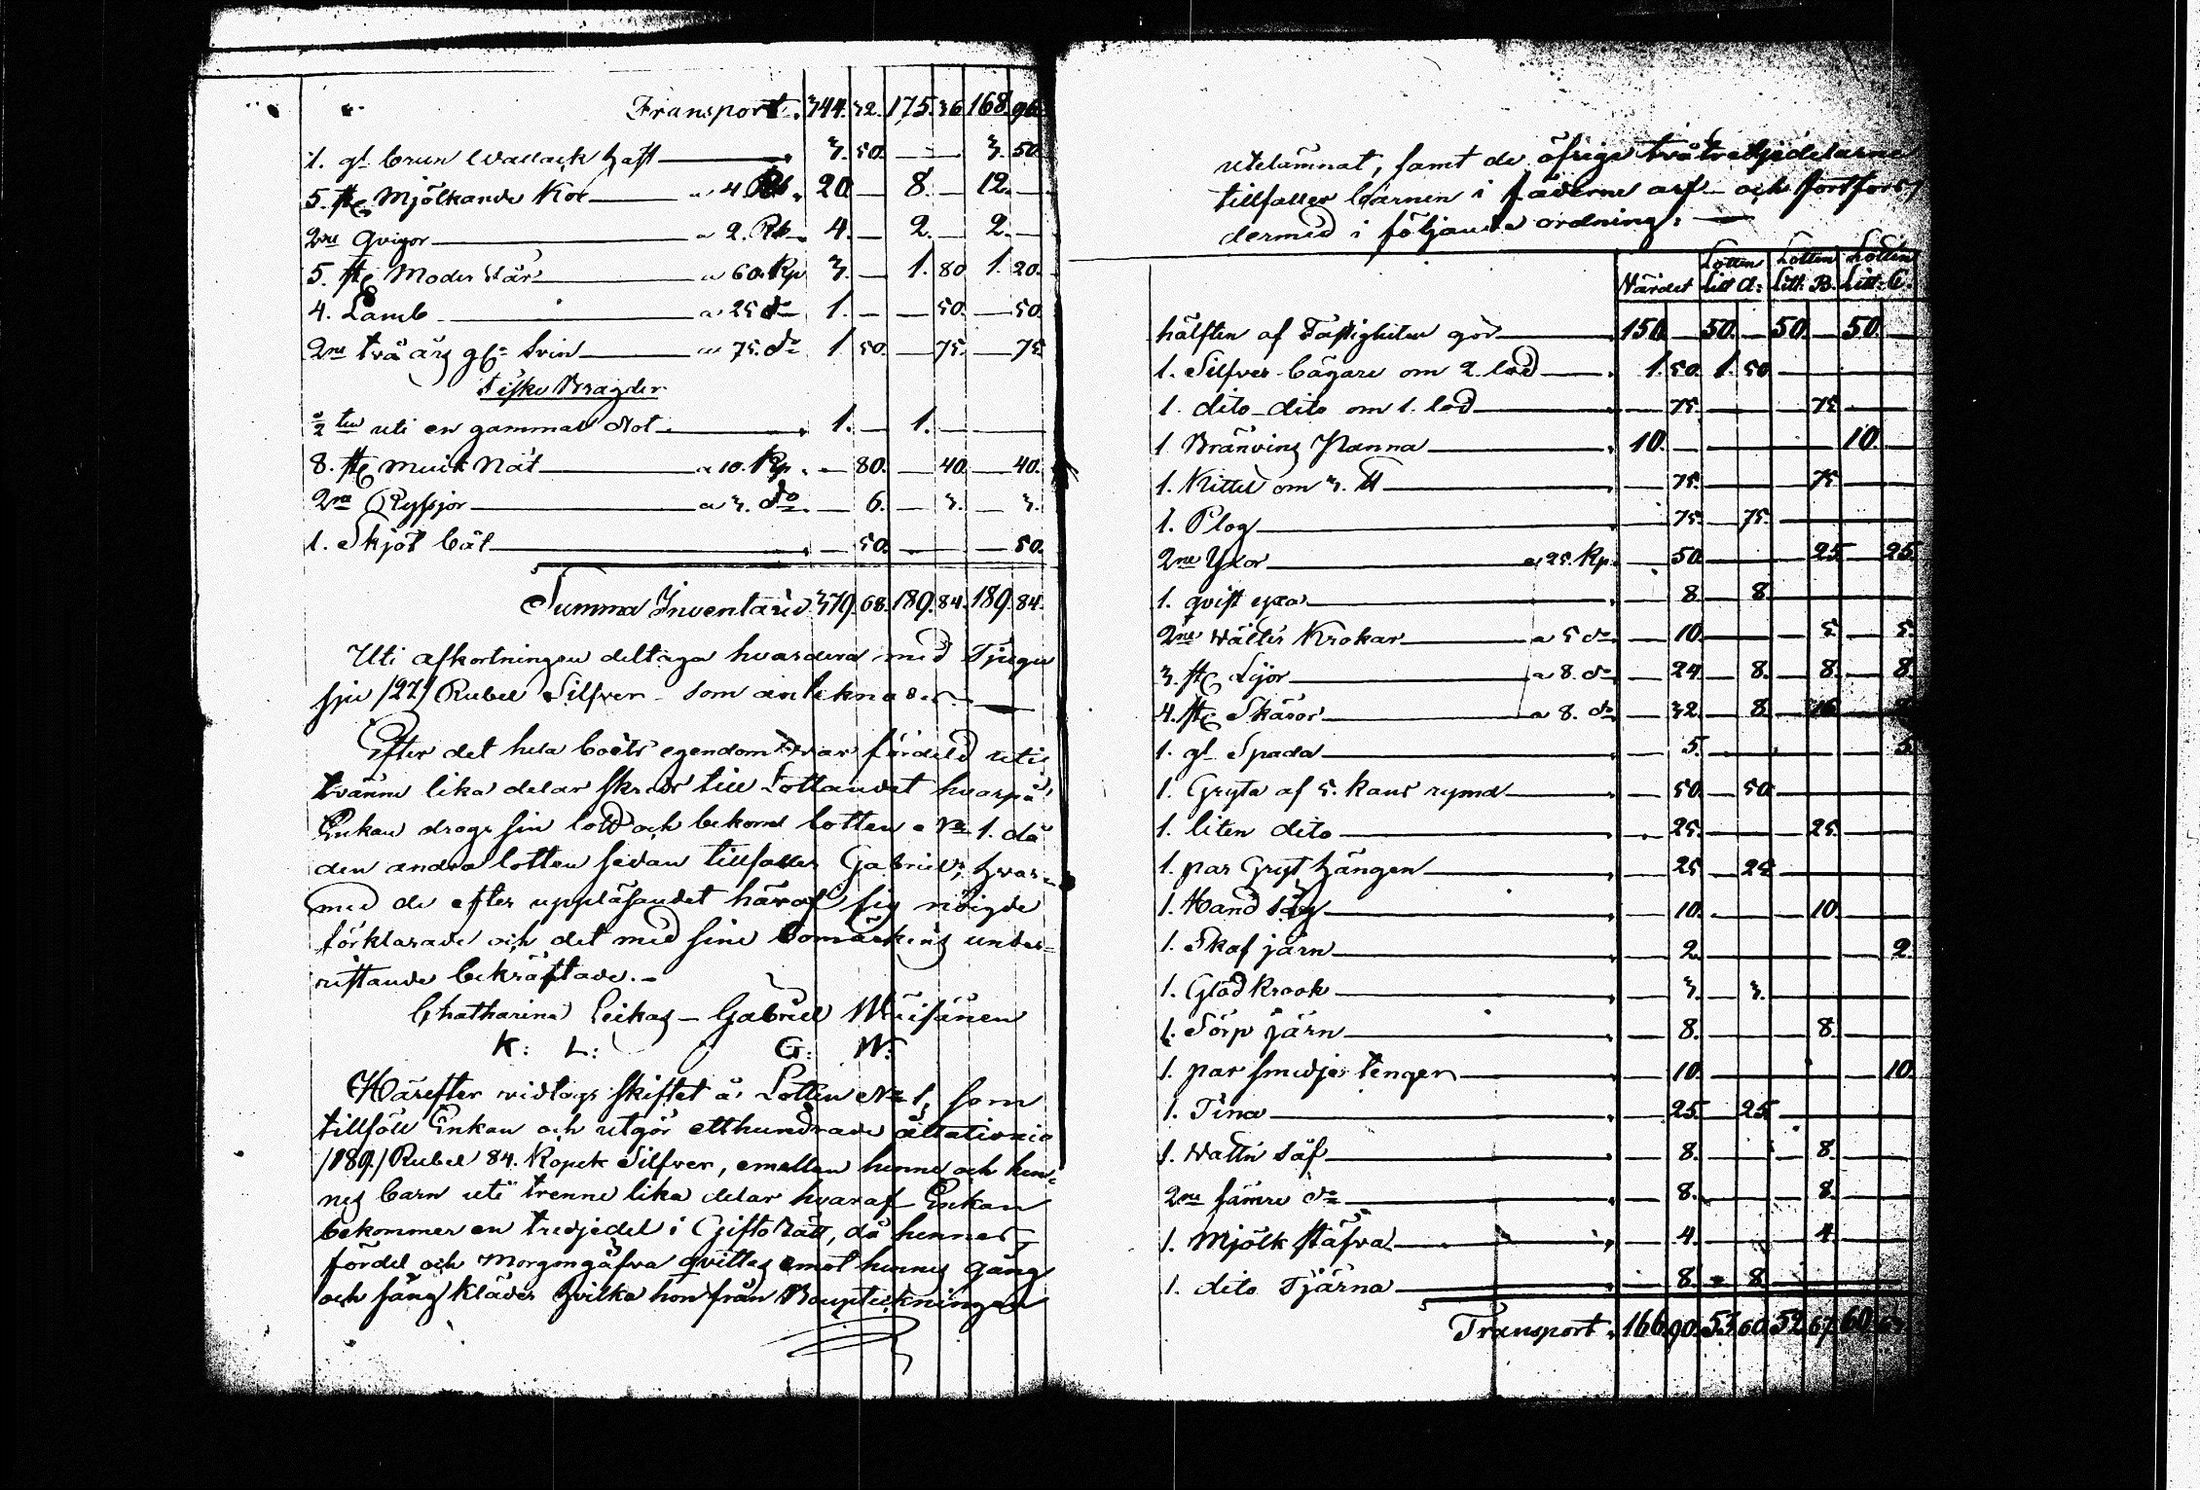 Transport. 344. 32. 175. 36 168. 96.
1. gl. brun Wallack häst — 3. 50. — — 3. 50.
5. st. Mjölkande Kor — a 4 Rb. 20 — 8. — 12. —
2ne Qvigor — a 2. Rb. 4. — 2. — 2. —
5. st. Moder Får — a 60. Kp 3. — 1. 80 1. 20.
4. Lamb — a 25 do 1. — — 50. — 50.
2ne två års gl. Svin — a 75. do 1. 50. — 75. — 75
Fiske Bragder
½ten uti en gammal Not — 1. — 1. — —
8. st. Muik Nät — a 10. Kp. — 80. — 40. — 40.
2ne Ryssjor — a 3. do — 6. — 3. — 3.
1. Skjöt båt — — 50. — — — 50.
Summa Inventarie 379. 68. 189. 84. 189. 84.
Uti afkortningen deltaga hvardera med Tjugu
sju /27/ Rubel Silfver som anteknas. —
Efter det hela boets egendom var fördeld uti
tvänne lika delar skreds till Lottandet hvarpå
Enkan drogs sin lott och bekom lotten No 1. då
den andra lotten sedan tillfaller Gabriel; hvar-
med de efter uppläsandet häraf sig nöigde
förklarade och det med sine bomärkens under-
ristande bekräftade. —
Chatharina Leikas — Gabriel Müisänen
K: L: G: M:
Härefter vidtogs skiftet å Lotten No 1, som
tillföll Enkan och utgör etthundrade åttationio
/189./ Rubel 84. Kopek Silfver, emellan henne och hen-
nes barn uti trenne lika delar hvaraf Enkan
bekommer en tredjedel i Giftorätt, då hennes
fördel och Morgongåfva qvittas emot hennes gång
och säng kläder hvilka hon från Bouptekningen
utelämnat, samt de öfrige två tredjedelarne
tillfaller barnen i fäderne arf och fortfors
dermed i följande ordning: —
Värdet Lotten Litt A: Lotten Litt: B. Lotten Litt: C.
hälften af Fastigheten gör — 150. — 50. — 50. — 50. —
1. Silfver bägare om 2. lod — 1. 50. 1. 50 — — — —
1. dito dito om 1. lod — — 75. — — — 75 — —
1 Bränvins Panna — 10. — — — — — 10. —
1. Kittel om 3. ℔ — — 75. — — — 75 — —
1. Plog — — 75. — 75. — — — —
2ne Yxor — a 25. Kp. — 50. — — — 25 — 25.
1. qvist yxa — — 8. — 8. — — — —
2ne Wälter Krokar — a 5 do — 10. — — — 5. — 5.
3. st. Lijor — a 8. do — 24. — 8. — 8. — 8.
4. st. Skäror — a 8. do — 32. — 8. — 16. — 8
1. gl. Spada — — 5. — — — — — 5.
1. Gryta af 5. kans rymd — — 50. — 50. — — — —
1. liten dito — — 25. — — — 25. — —
1. par Gryt hängen — — 25 — 25. — — — —
1. Hand såg — — 10. — — — 10. — —
1. Skaf järn — — 2. — — — — — 2.
1. Glöd kraok — — 3. — 3. — — — —
1. Sörp järn — — 8. — — — 8. — —
1. par smedjes tenger — — 10. — — — — — 10.
1. Tina — — 25. — 25. — — — —
1. Wattu såf — — 8. — — — 8. — —
2ne sämre do — — 8. — — — 8. — —
1. Mjölk stäfva — — 4. — — — 4. — —
1. dito Tjärna — — 8. — 8. — — — —
Transport. 166. 90. 53. 60. 52. 67. 60.